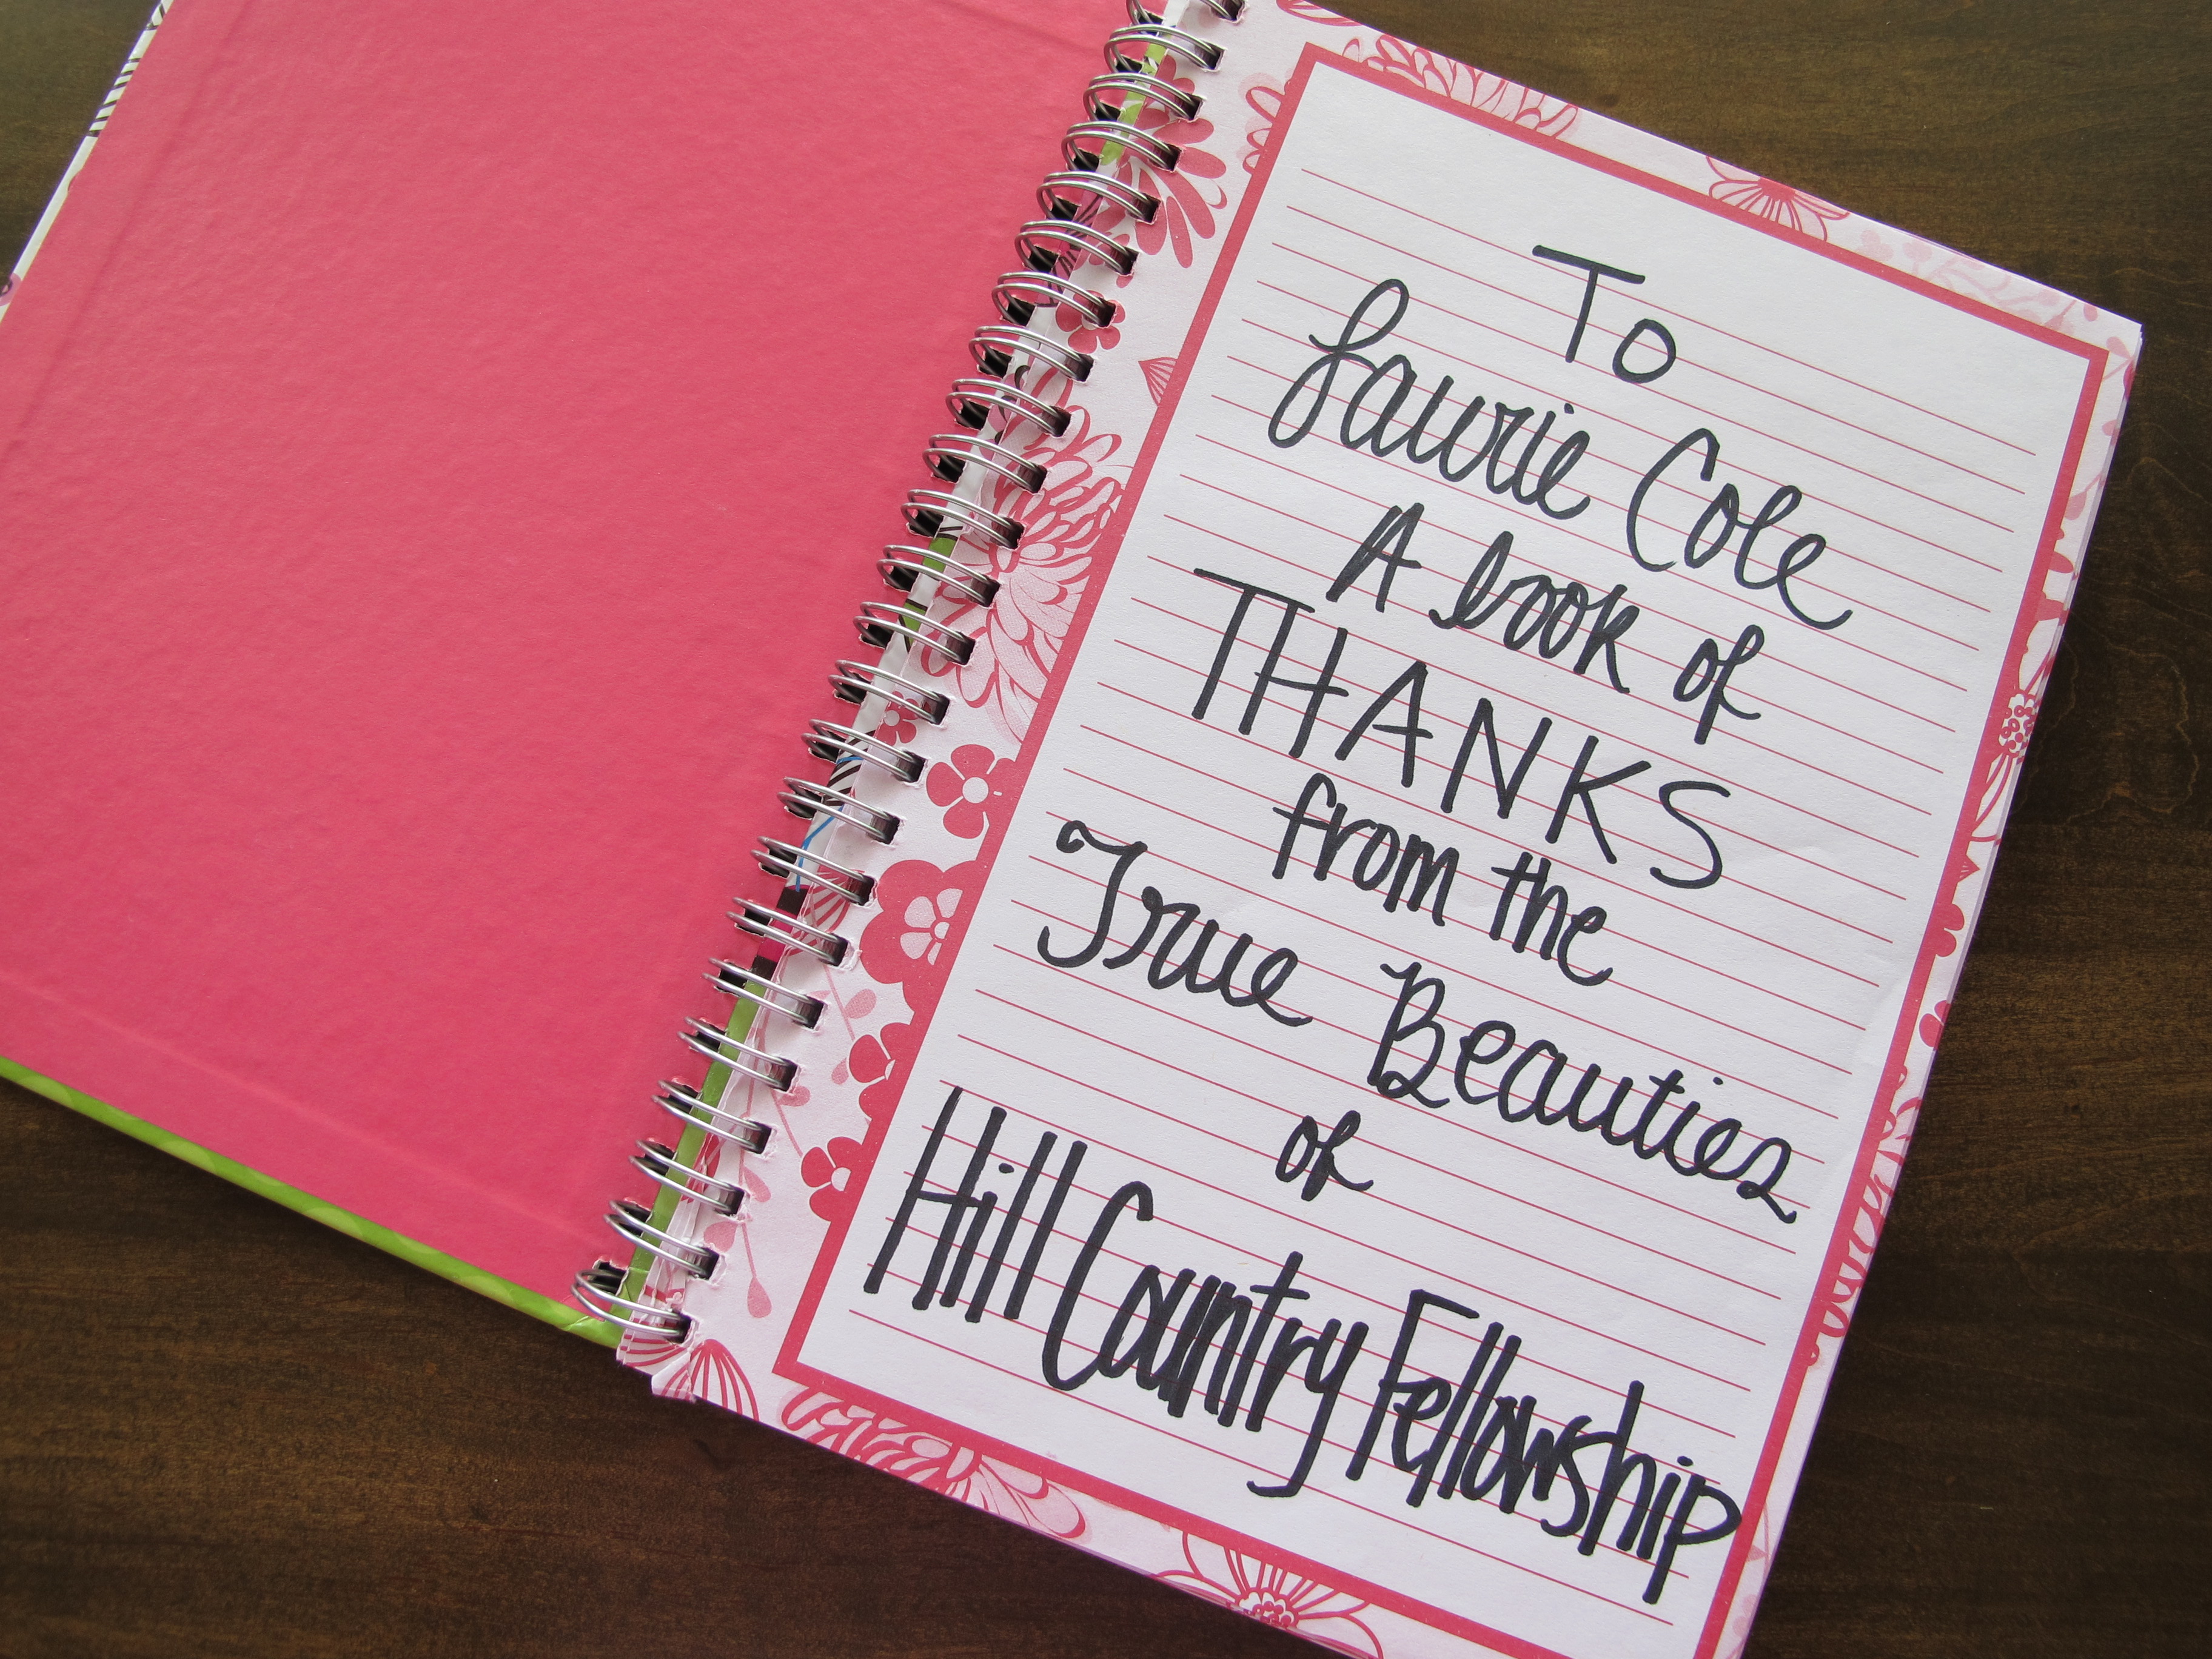 To
Laurie Cole
A book of
THANKS
from the
True Beauties
of
Hill Country Fellowship